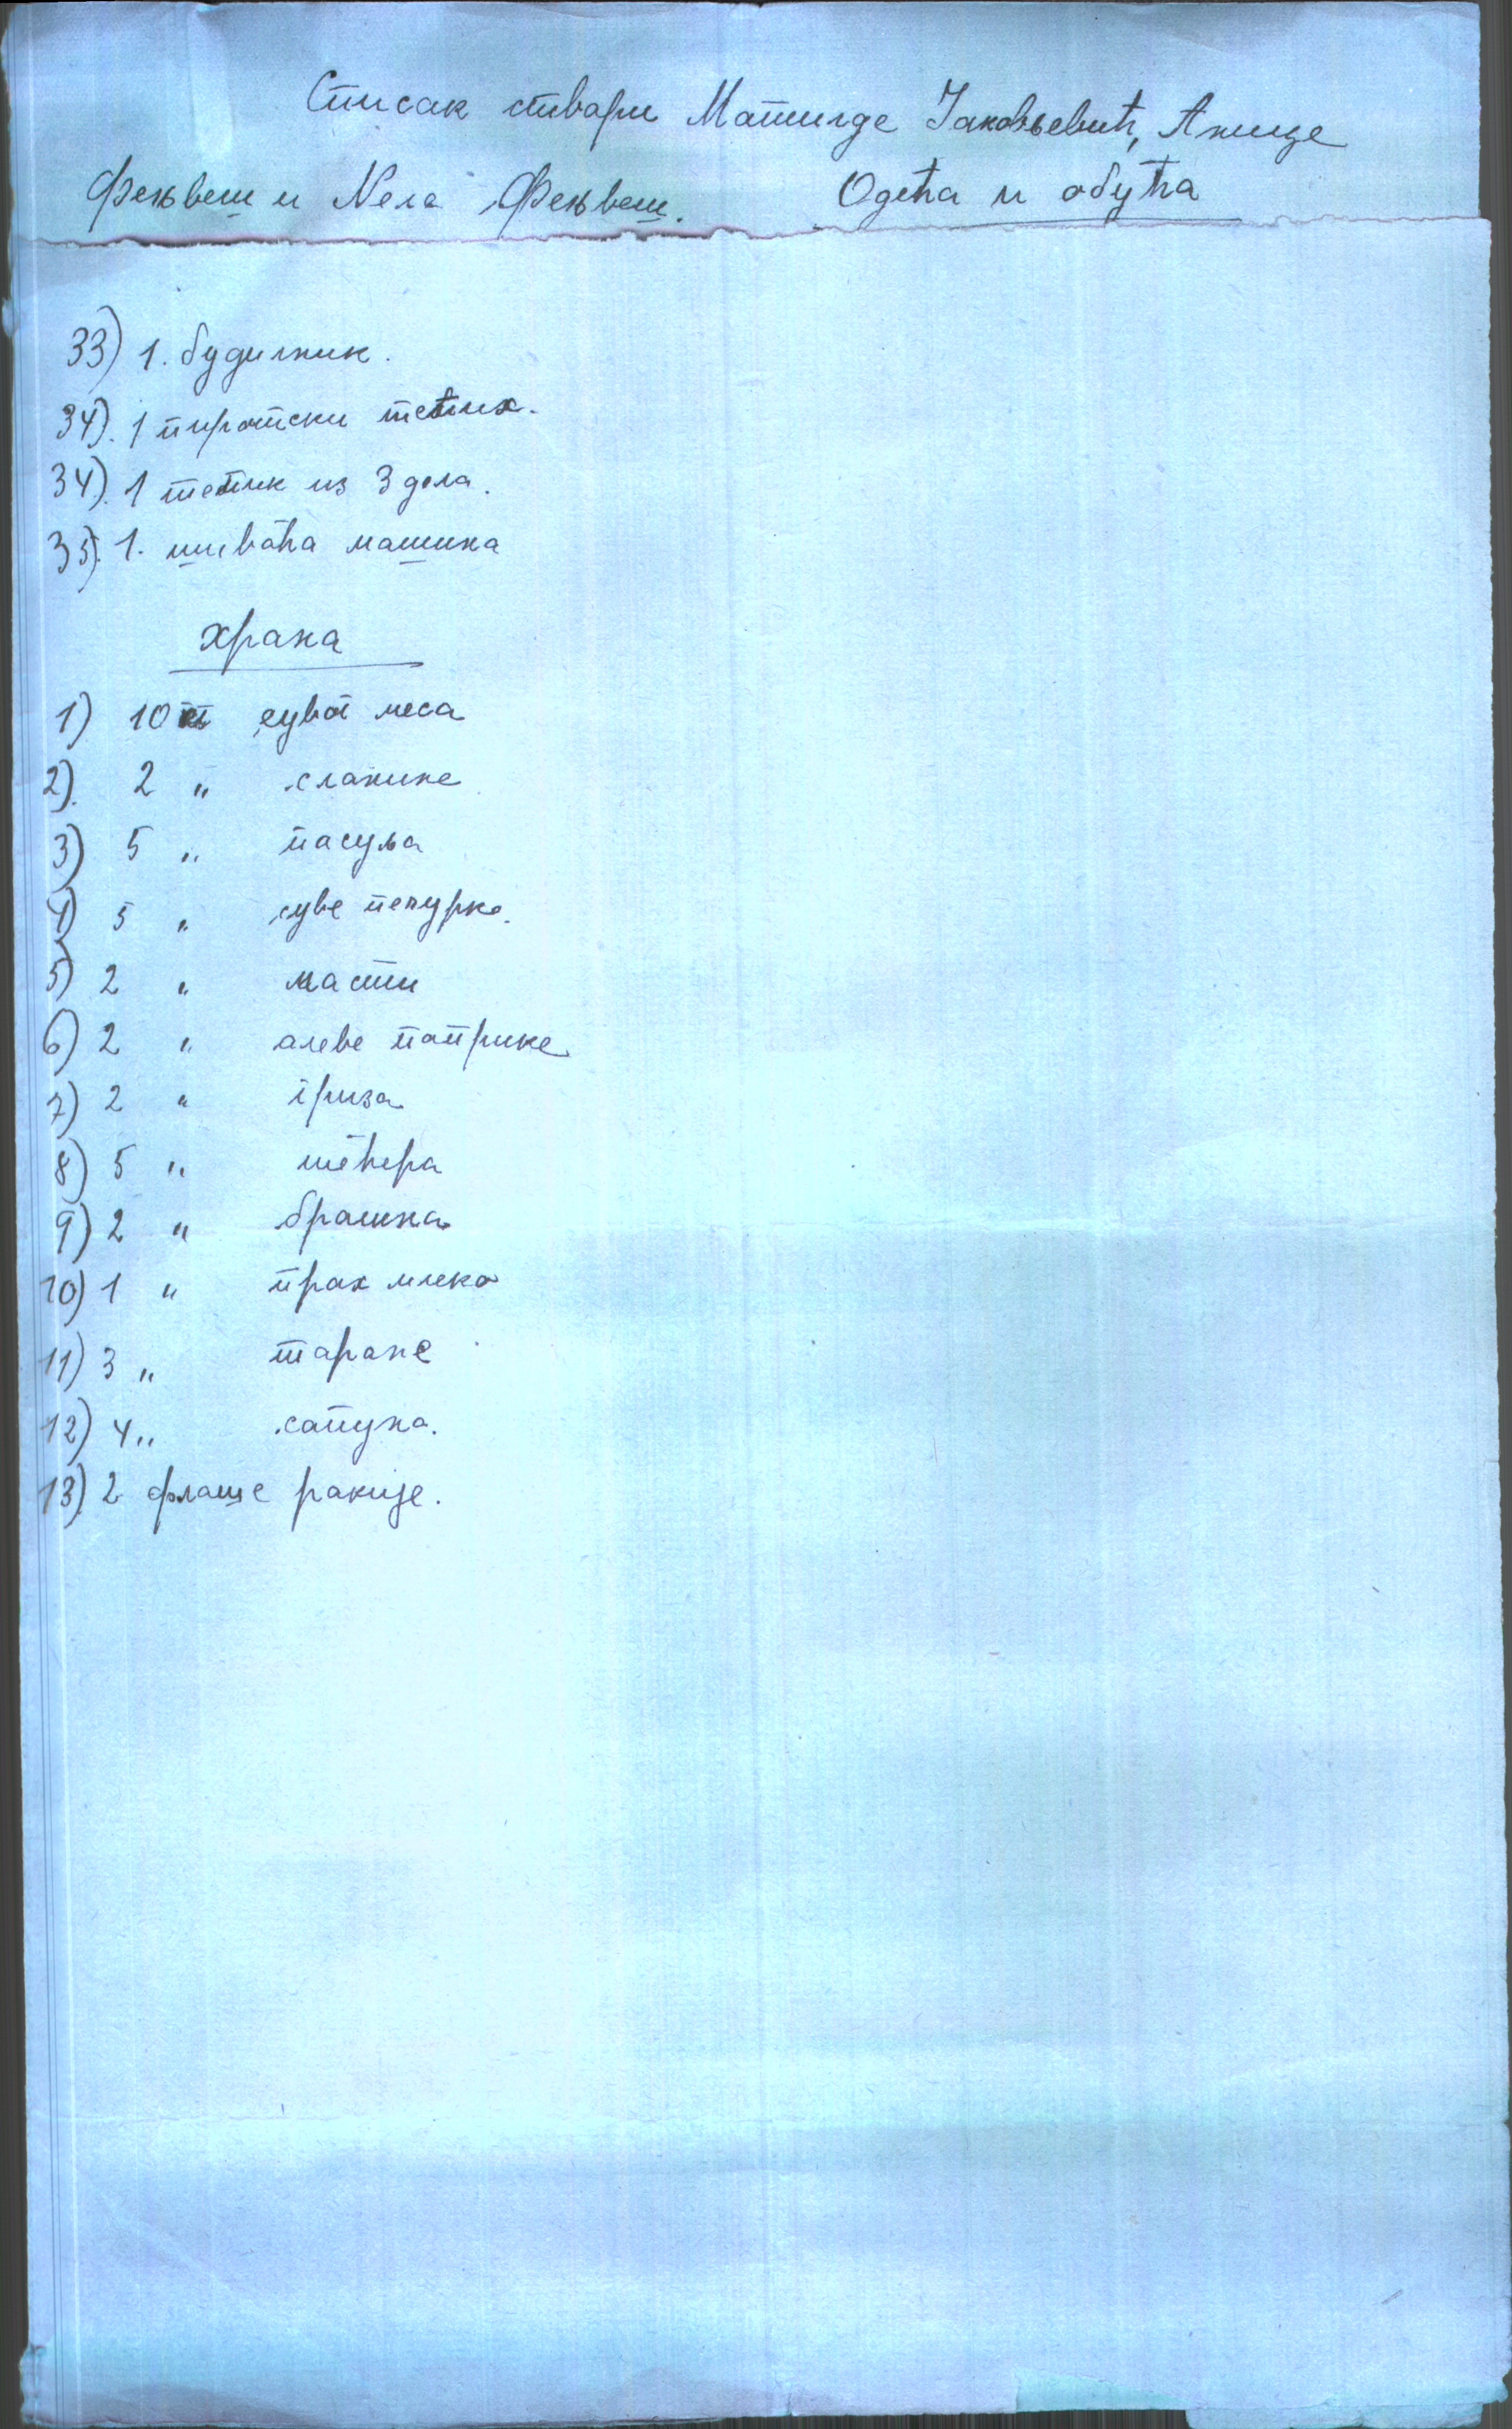 Списак ствари Матилде Јаковљевић, Анице
Фењвеш и Nела Фењвеш. Одећа и обућа
33) 1. будилник.
34). 1 пиротски тепих.
34). 1 тепик из 3 дела.
35). 1. шиваћа машина
Храна
1) 10 кг сувог меса
2). 2 " сланине
3) 5 " пасуља
4) 5 " суве печурке.
5) 2 " масти
6) 2 " алеве паприке
7) 2 " гриза
8) 5 " шећера
9) 2 " брашна
10) 1 " прах млеко
11) 3 " таране
12) 4 " сапуна.
13) 2 флаше ракије.